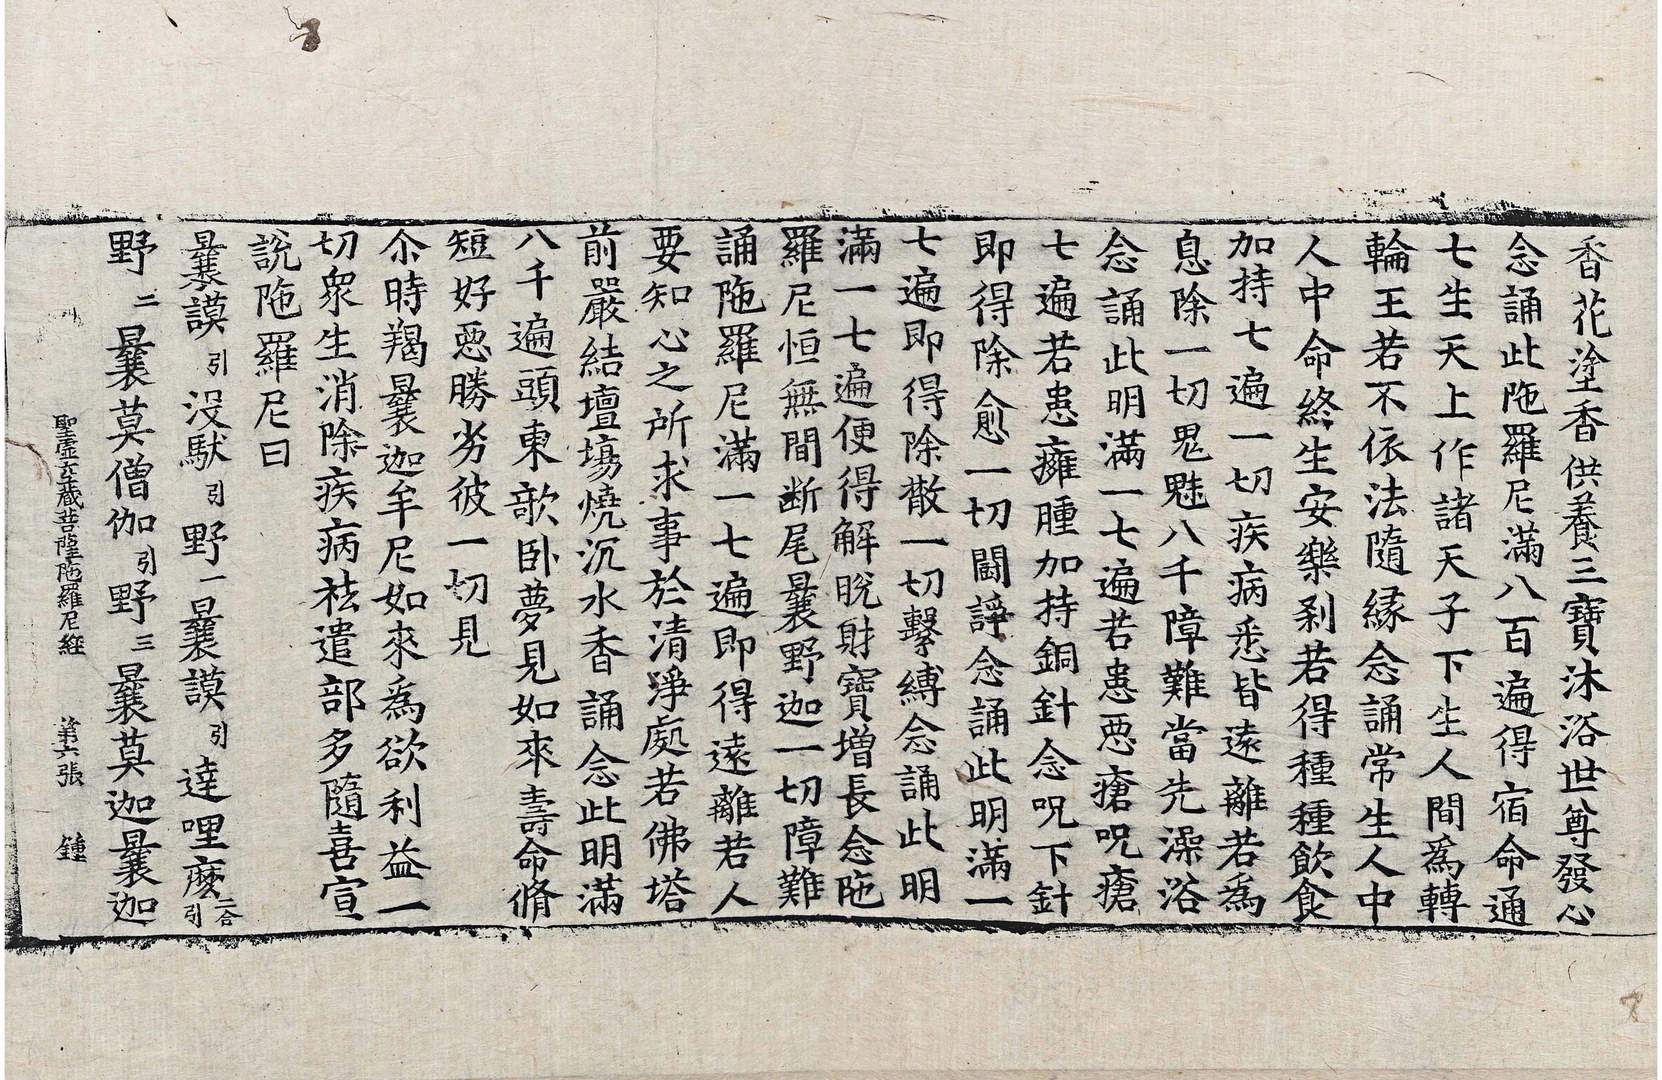 香花塗香供養三寶沐浴世尊發心
念誦此陁羅尼滿八百遍得宿命通
七生天上作諸天子下生人間為轉
輪王若不依法隨緣念誦常生人中
人中命終生安樂剎若得種種飲食
加持七遍一切疾病悉皆遠離若為
息除一切鬼魅八千障難當先澡浴
念誦此明滿一七遍若患惡瘡呪瘡
七遍若患癰腫加持銅針念呪下針
即得除愈一切鬪諍念誦此明滿一
七遍即得除散一切繫縛念誦此明
滿一七遍便得解脫財寶增長念陁
羅尼恒無間断尾曩野迦一切障難
誦陁羅尼滿一七遍即得遠離若人
要知心之所求事於清淨處若佛塔
前嚴結壇場燒沉水香誦念此明滿
八千遍頭東歌卧夢見如來壽命脩
短好惡勝劣彼一切見
尒時羯曩迦牟尼如來為欲利益一
切眾生消除疾病祛遣部多隨喜宣
說陁羅尼曰
曩謨引没馱引野一曩謨引達哩麽二合引
野二曩莫僧伽引野三曩莫迦曩迦
聖虛空藏菩薩陁羅尼経 第六張 鍾